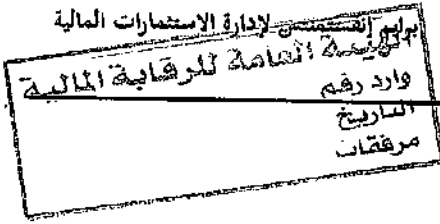 برايم إنفستمنتس لإدارة الاستثمارات المالية
الهيئة العامة للرقابة المالية
وارد رقم
التاريخ
مرفقات